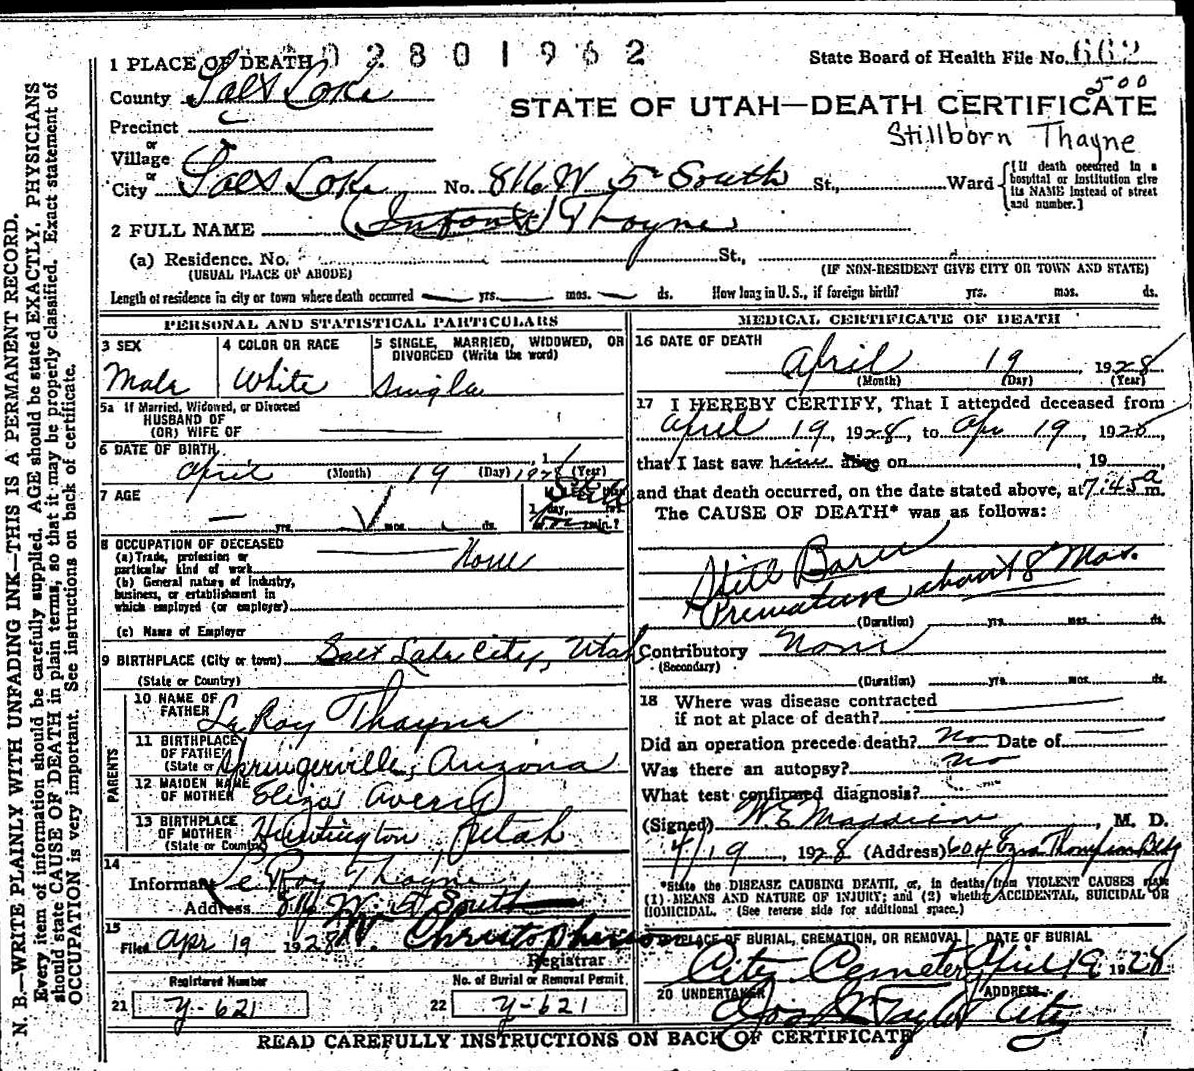 02801962
1 PLACE OF DEATH
State Board of Health File No. 662
County Salt Lake
500
STATE OF UTAH—DEATH CERTIFICATE
Precinct
Stillborn Thayne
or
Village
or
City Salt Lake No. 816 W 5 South St., Ward
[If death occurred in a
hospital or institution give
its NAME instead of street
and number.]
2 FULL NAME (Infant) Thayne
(a) Residence. No. St.,
(USUAL PLACE OF ABODE) (IF NON-RESIDENT GIVE CITY OR TOWN AND STATE)
Length of residence in city or town where death occurred yrs. mos. ds. How long in U. S., if foreign birth? yrs. mos. ds.
PERSONAL AND STATISTICAL PARTICULARS
3 SEX 4 COLOR OR RACE 5 SINGLE, MARRIED, WIDOWED, OR
DIVORCED (Write the word)
Male White Single
5a If Married, Widowed, or Divorced
HUSBAND OF
(OR) WIFE OF
6 DATE OF BIRTH
April (Month) 19 (Day) 1928 (Year)
7 AGE
yrs. mos. ds.
Still
Born
8 OCCUPATION OF DECEASED
(a) Trade, profession or
particular kind of work None
(b) General nature of industry,
business, or establishment in
which employed (or employer)
(c) Name of Employer
9 BIRTHPLACE (City or town) Salt Lake City, Utah
(State or Country)
10 NAME OF
FATHER Le Roy Thayne
11 BIRTHPLACE
OF FATHER
(State or Springerville, Arizona
12 MAIDEN NAME
OF MOTHER Eliza Avery
13 BIRTHPLACE
OF MOTHER Huntington Utah
(State or Country)
PARENTS
14
Informant Le Roy Thayne
Address 816 W 5 South
15
Filed Apr 19 1928 Christopherson
Registrar
Registered Number No. of Burial or Removal Permit
21 Y-621 22 Y-621
MEDICAL CERTIFICATE OF DEATH
16 DATE OF DEATH
April 19 1928
(Month) (Day) (Year)
17 I HEREBY CERTIFY, That I attended deceased from
April 19, 1928, to Apr 19, 1928,
that I last saw him alive on , 19 ,
and that death occurred, on the date stated above, at 7:45 a m.
The CAUSE OF DEATH* was as follows:
Still Born
Premature about 8 Mos.
(Duration) yrs. mos. ds.
Contributory None
(Secondary)
(Duration) yrs. mos. ds.
18 Where was disease contracted
if not at place of death?
Did an operation precede death? No Date of
Was there an autopsy? No
What test confirmed diagnosis?
(Signed) W. E. Maddison, M. D.
4/19, 1928 (Address) 604 Ezra Thompson Bldg
*State the DISEASE CAUSING DEATH, or, in deaths from VIOLENT CAUSES state
(1) MEANS AND NATURE OF INJURY; and (2) whether ACCIDENTAL, SUICIDAL OR
HOMICIDAL. (See reverse side for additional space.)
PLACE OF BURIAL, CREMATION, OR REMOVAL DATE OF BURIAL
City Cemetery April 19 1928
20 UNDERTAKER ADDRESS
Jos Wm Taylor City
READ CAREFULLY INSTRUCTIONS ON BACK OF CERTIFICATE
N. B.—WRITE PLAINLY WITH UNFADING INK—THIS IS A PERMANENT RECORD.
Every item of information should be carefully supplied. AGE should be stated EXACTLY. PHYSICIANS
should state CAUSE OF DEATH in plain terms, so that it may be properly classified. Exact statement of
OCCUPATION is very important. See instructions on back of certificate.